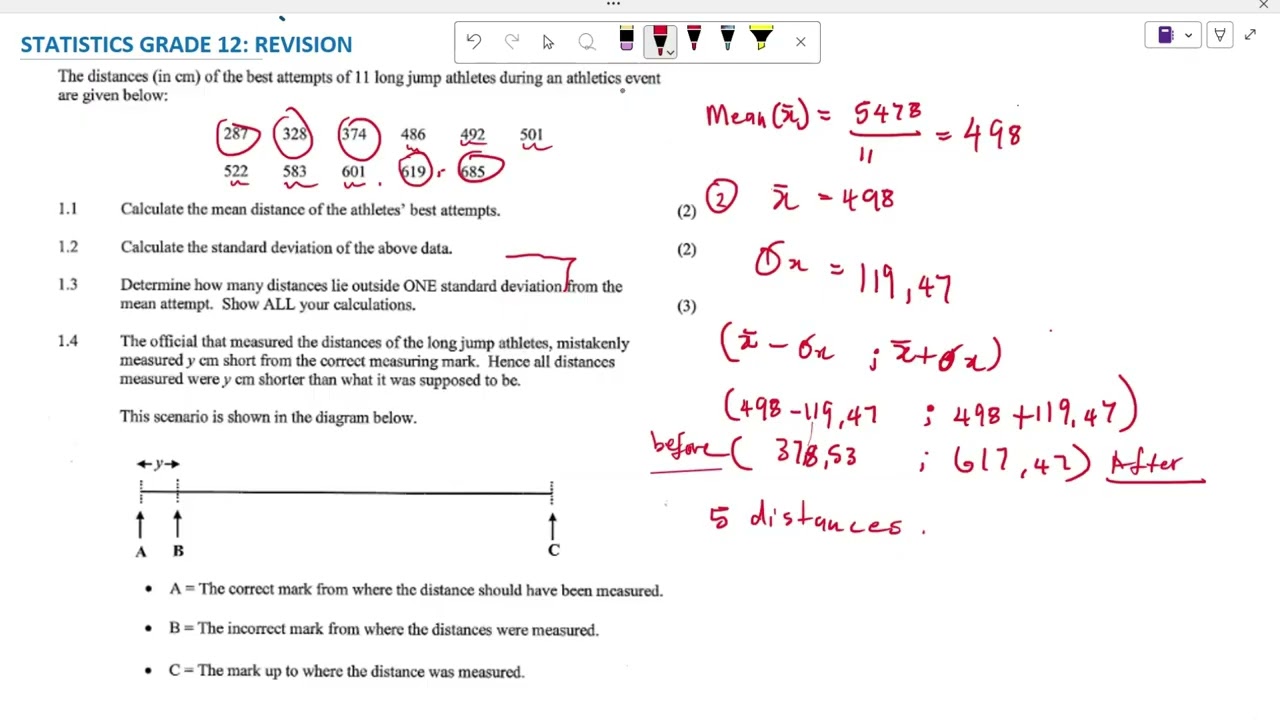 STATISTICS GRADE 12: REVISION
The distances (in cm) of the best attempts of 11 long jump athletes during an athletics event
are given below:
287 328 374 486 492 501
522 583 601 619 685
1.1 Calculate the mean distance of the athletes' best attempts. (2)
1.2 Calculate the standard deviation of the above data. (2)
1.3 Determine how many distances lie outside ONE standard deviation from the
mean attempt. Show ALL your calculations. (3)
1.4 The official that measured the distances of the long jump athletes, mistakenly
measured y cm short from the correct measuring mark. Hence all distances
measured were y cm shorter than what it was supposed to be.
This scenario is shown in the diagram below.
y
A B C
• A = The correct mark from where the distance should have been measured.
• B = The incorrect mark from where the distances were measured.
• C = The mark up to where the distance was measured.
Mean (x̄) = 5478 / 11 = 498
② x̄ = 498
σx = 119,47
(x̄ - σx ; x̄ + σx)
(498 - 119,47 ; 498 + 119,47)
before ( 378,53 ; 617,47) After
5 distances .